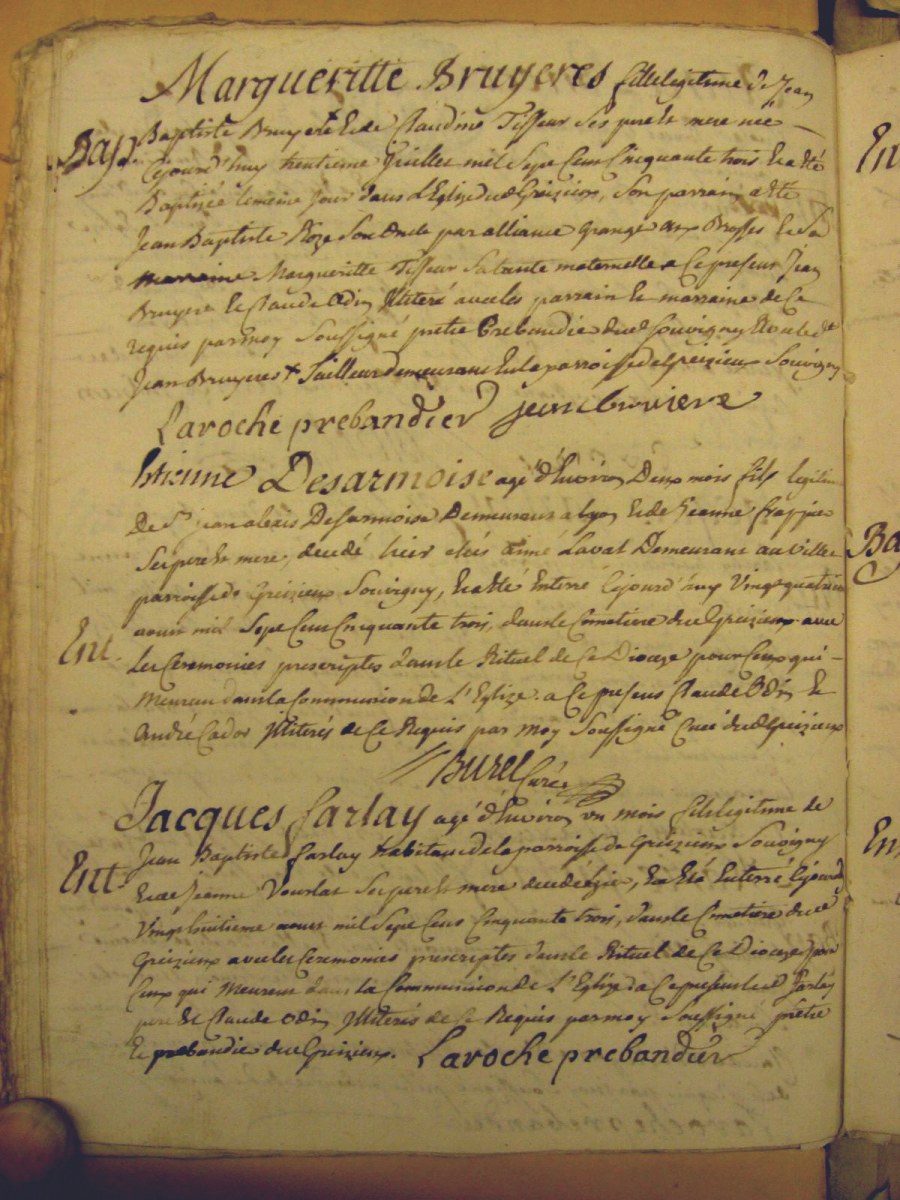 Margueritte Bruyeres fille legitime de Jean
Bap. Baptiste Bruyere & de Claudine Tisseur ses pere & mere née
cejourd'huy trentieme Juillet mil sept cens cinquante trois & a été
Baptisée le meme jour dans l'Eglize dud Greizieux, son parrain a été
Jean Baptiste Roze son oncle par alliance granger aux Brosses & sa
marraine Margueritte Tisseur sa tante maternelle a ce presens Jean
Bruyere & Claude Odin illiteré avec les parrain & marraine de ce
requis par moy soussigné pretre Prebandié dud Souvigny
Jean Bruyeres + Tailleur demeurant en la parroisse de Greizieux Souvigny
Laroche prebandier jean bruviere
Etienne Desarmoise agé d'Environ Deux mois fils legitime
De Sr jean alexis Desarmoise Demeurant a Lyon & de Jeanne frappa
ses pere & mere, decedé hier chés anné Laval Demeurant au
parroisse de Greizieux Souvigny, & a été Enterré cejourd'huy Vingtquatrieme
Ent. aoust mil sept cens cinquante trois, dans le Cimetiere dud Greizieux avec
les Ceremonies prescriptes dans le Rituel de ce Dioceze pour ceux qui
Meurent dans la Communion de L'Eglize. a ce presens Claude Odin &
André Cador illiterés de ce Requis par moy soussigné Curé dud Greizieux
Burel Curé
Jacques farlay agé d'Environ un mois fils legitime de
Jean Baptiste farlay habitant de la parroisse de Greizieux Souvigny
Ent & de Jeanne Vourlat ses pere & mere decedé hier, & a été Enterré cejourd
Vingthuitieme aoust mil sept cens cinquante trois, dans le Cimetiere dud
Greizieux avec les Ceremonies prescriptes dans le Rituel de ce Dioceze pour
Ceux qui Meurent dans la Communion de L'Eglize a ce presens led farlay
pere & Claude Odin illiterés de ce Requis par moy soussigné pretre
& prebandié dud Greizieux. Laroche prebandier
En
Ba
En